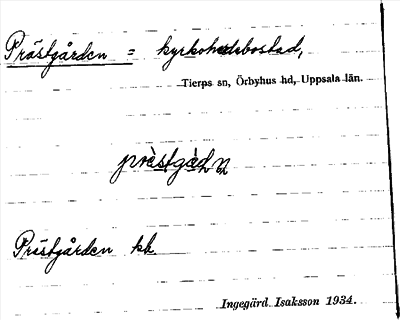 Prästgården = kyrkoherdebostad,
Tierps sn, Örbyhus hd, Uppsala län.
Prästgården kk.
Ingegärd Isaksson 1934.